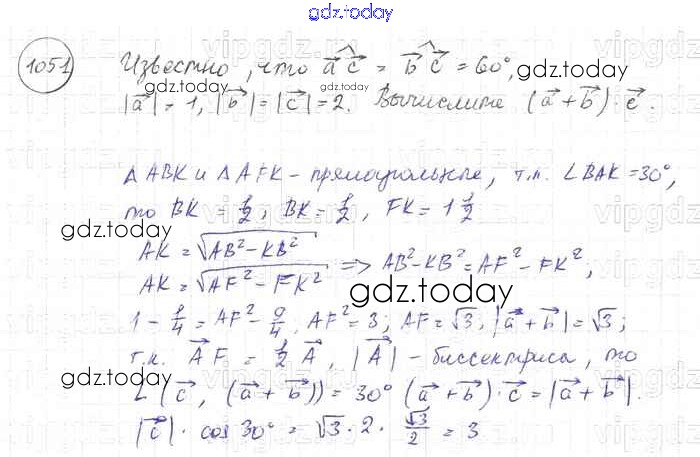 gdz.today
1051 Известно, что \vec{a}^\vec{c} = \vec{b}^\vec{c} = 60°,
gdz.today
|\vec{a}| = 1, |\vec{b}| = |\vec{c}| = 2. Вычислите (\vec{a} + \vec{b}) · \vec{c}.
gdz.today
Δ ABK и Δ AFK – прямоугольные, т.к. ∠BAK = 30°,
то BK = 1/2; BK = 1/2, FK = 1 1/2
gdz.today
AK = √(AB² – KB²)
AK = √(AF² – FK²) => AB² – KB² = AF² – FK²;
gdz.today
1 – 1/4 = AF² – 9/4, AF² = 3; AF = √3, |\vec{a} + \vec{b}| = √3;
т.к. \vec{AF} = 1/2 \vec{A}, |\vec{A}| – биссектриса, то
gdz.today
∠(\vec{c}, (\vec{a} + \vec{b})) = 30° (\vec{a} + \vec{b}) · \vec{c} = |\vec{a} + \vec{b}| ·
|\vec{c}| · cos 30° = √3 · 2 · √3/2 = 3
gdz.today